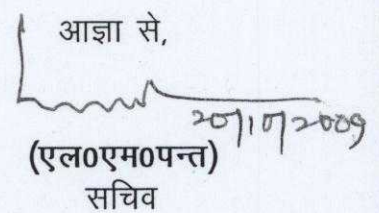 आज्ञा से,
20/10/2009
(एल0एम0पन्त)
सचिव